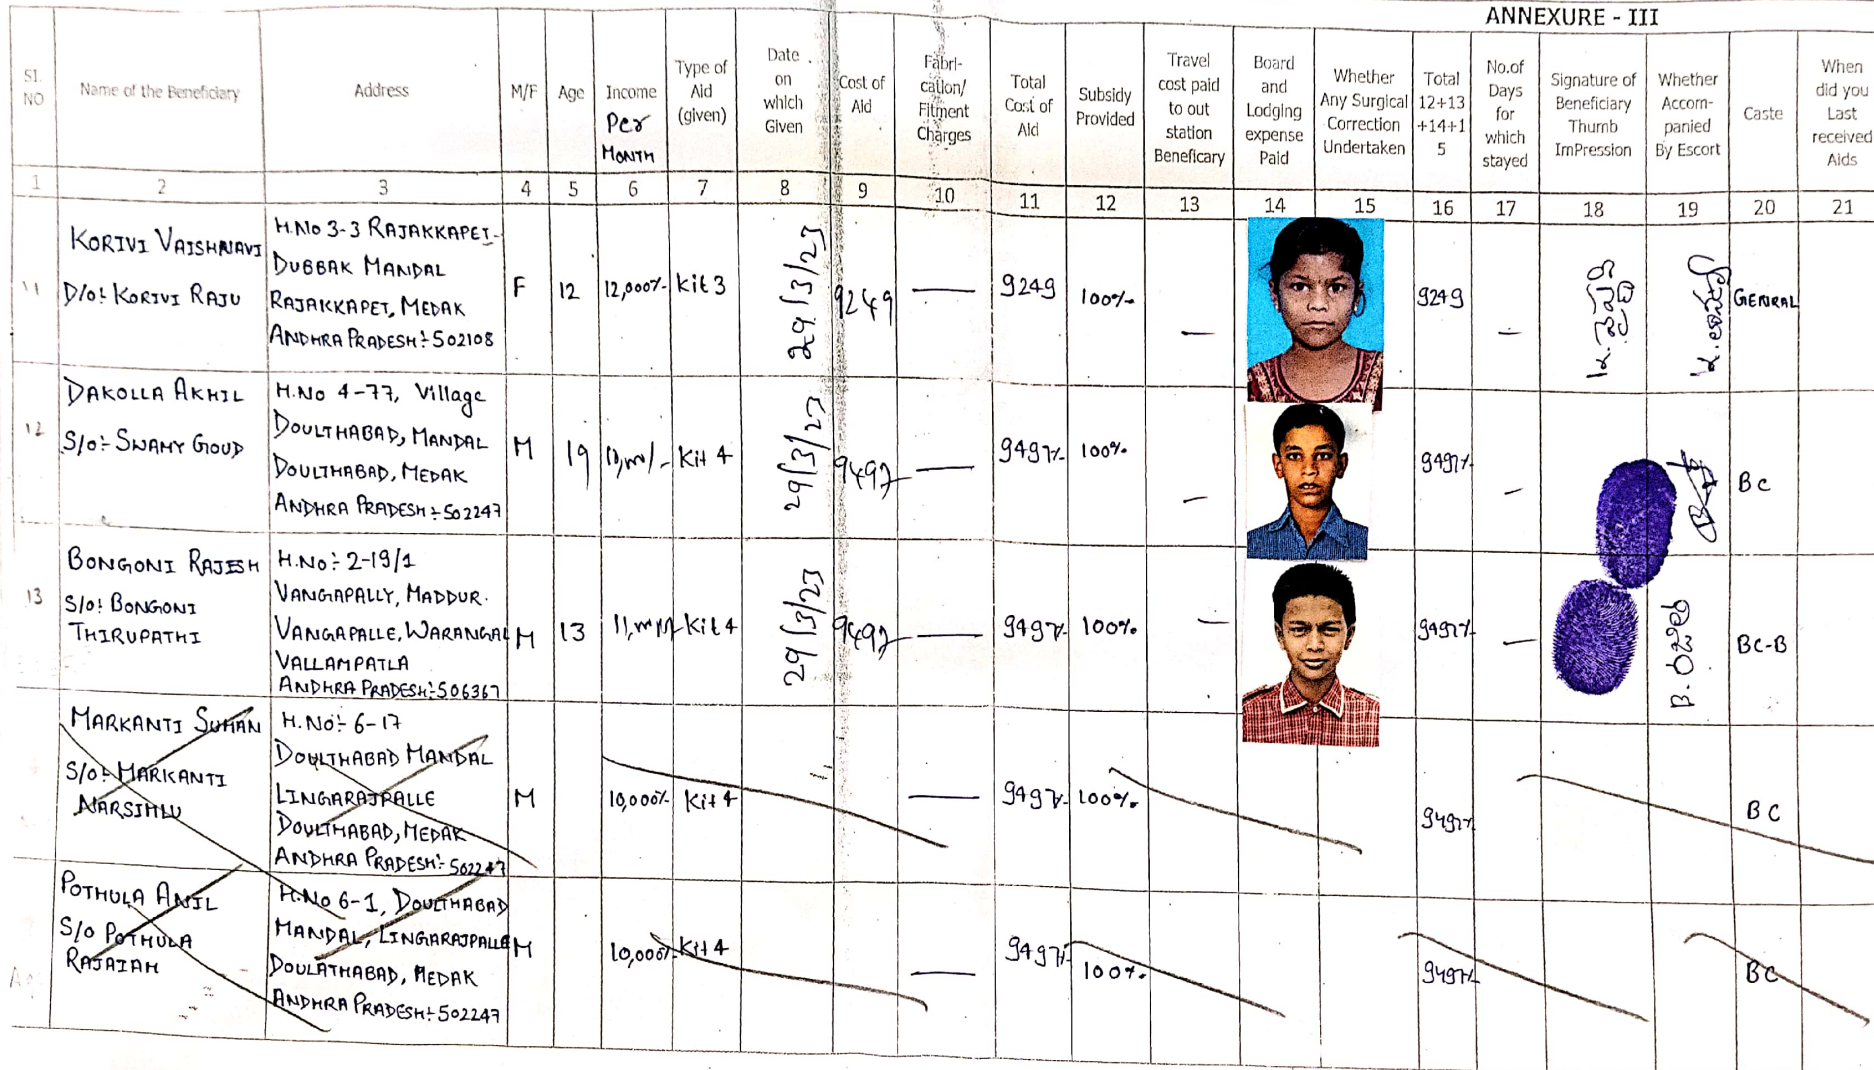 ANNEXURE - III
Sl. NO
Name of the Beneficiary
Address
M/F
Age
Income Per Month
Type of Aid (given)
Date on which Given
Cost of Aid
Fabri-cation/ Fitment Charges
Total Cost of Aid
Subsidy Provided
Travel cost paid to out station Beneficary
Board and Lodging expense Paid
Whether Any Surgical Correction Undertaken
Total 12+13 +14+1 5
No.of Days for which stayed
Signature of Beneficiary Thumb ImPression
Whether Accom-panied By Escort
Caste
When did you Last received Aids
1 2 3 4 5 6 7 8 9 10 11 12 13 14 15 16 17 18 19 20 21
11
KORIVI VAISHNAVI
D/o:- KORIVI RAJU
H.No 3-3 RAJAKKAPET-
DUBBAK MANDAL
RAJAKKAPET, MEDAK
ANDHRA PRADESH:- 502108
F 12 12,000/- Kit 3 29/3/23 9249 — 9249 100%- — 9249 — GENRAL
12
DAKOLLA AKHIL
S/o:- SWAMY GOUD
H.No 4-77, Village
DOULTHABAD, MANDAL
DOULTHABAD, MEDAK
ANDHRA PRADESH:- 502247
M 19 Kit 4 29/3/23 9497 — 9497/- 100%- — 9497/- — BC
13
BONGONI RAJESH
S/o:- BONGONI
THIRUPATHI
H.No:- 2-19/1
VANGAPALLY, MADDUR.
VANGAPALLE, WARANGAL
VALLAMPATLA
ANDHRA PRADESH:- 506367
M 13 Kit 4 29/3/23 9497 — 9497/- 100%- — 9497/- — BC-B
MARKANTI SUMAN
S/o:- MARKANTI
NARSIMLU
H.No:- 6-17
DOULTHABAD MANDAL
LINGARAJPALLE
DOULTHABAD, MEDAK
ANDHRA PRADESH:- 502247
M 10,000/- Kit 4 — 9497/- 100%- 9497/- BC
POTHULA ANIL
S/o POTHULA
RAJAIAH
H.No 6-1, DOULTHABAD
MANDAL, LINGARAJPALLE
DOULATHABAD, MEDAK
ANDHRA PRADESH:- 502247
M 10,000/- Kit 4 — 9497/- 100%- 9497/- BC